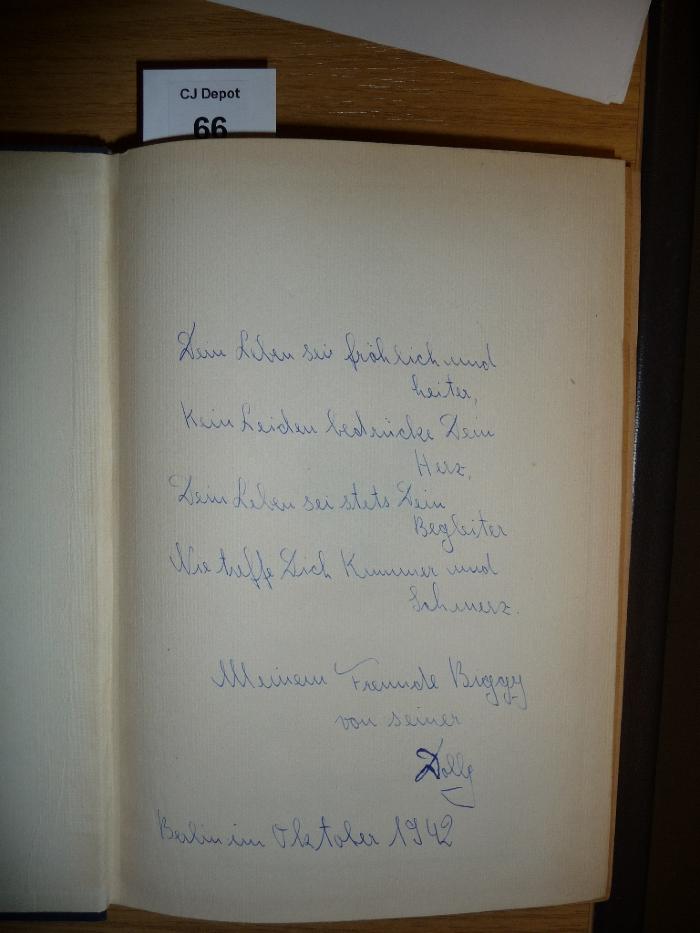 CJ Depot
66
Dein Leben sei fröhlich und
heiter,
Kein Leiden bedrücke Dein
Herz,
Dein Leben sei stets Dein
Begleiter
Nie treffe Dich Kummer und
Schmerz.
Meinem Freunde Biggy
von seiner
Dolly
Berlin im Oktober 1942